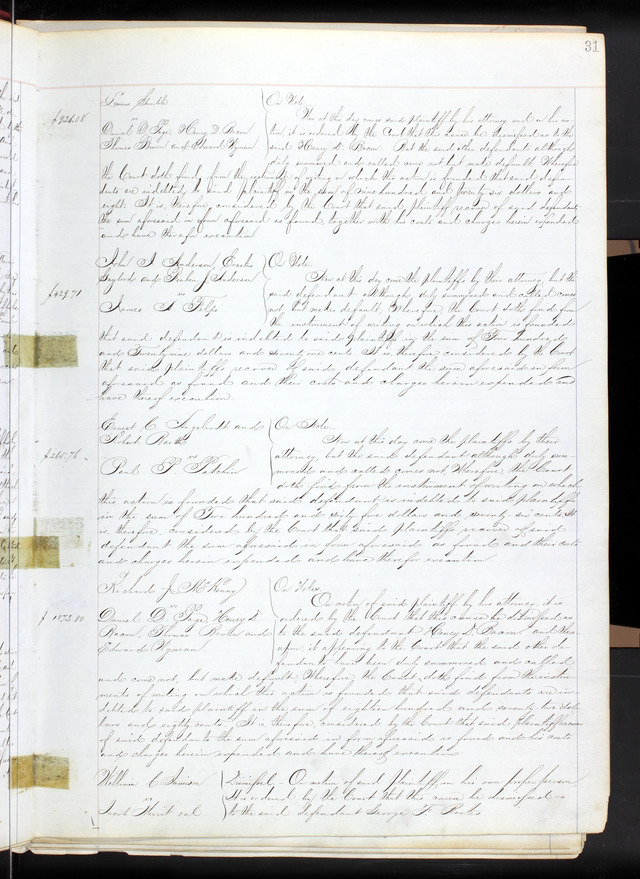 31
Louis Shickle } On Note
vs Now at this day comes said plaintiff by his attorney and on his mo-
$926.08 Daniel D. Page Henry D. Bacon tion it is ordered by the Court that this cause be dismissed as to the
and Edward Wyman said Henry D. Bacon But the said other defendants although
duly summoned and called come not but make default Wherefore
the Court doth find, from the of writing on which the action is founded that said defen-
dants are indebted to said plaintiff in the sum of nine hundred and twenty six dollars and
eight It is, therefore considered by the Court that said plaintiff recover of said defendants
the sum aforesaid in form aforesaid as found, together with his costs and charges herein expended
and have therefor execution
John J. Anderson } On Note
and J. Anderson Now at this day come the plaintiffs by their attorney, but the
$429.71 vs said defendant although duly summoned and called comes
James A. not but makes default; Wherefore, the Court doth find from
the instrument of writing on which this action is founded
that said defendant is indebted to said plaintiffs in the sum of Four hundred
and Twenty nine dollars and seventy one cents It is therefore considered by the Court
that said plaintiffs recover of said defendant the sum aforesaid in form
aforesaid as found and their costs and charges herein expended and
have thereof execution.
Ernest C. and } On Note
Robert Barth Now at this day come the plaintiffs by their
$265.76 vs attorney, but the said defendant although duly sum-
Paul P. moned and called comes not Wherefore, the Court
doth find from the instrument of writing on which
this action is founded that said defendant is indebted to said plaintiffs
in the sum of Two hundred and sixty five dollars and seventy six cents It
is therefore, considered by the Court that said plaintiffs recover of said
defendant the sum aforesaid in form aforesaid as found and their costs
and charges herein expended and have therefor execution
Richard J. } On Notes
vs On motion of said plaintiff by his attorney, it is
$1872.80 Daniel D. Page Henry D. ordered by the Court that this cause be dismissed as
Bacon, and to the said defendant Henry D. Bacon and there
Edward Wyman upon, it appearing to the Court that the said other de-
fendants have been duly summoned and called
and come not, but make default; Wherefore, the Court, doth find from the instru-
ments of writing on which this action is founded that said defendants are in-
debted to said plaintiff in the sum of eighteen hundred and seventy two dol-
lars and eighty cents. It is therefore, considered by the Court that said plaintiff recover
of said defendants the sum aforesaid in form aforesaid as found and his costs
and charges herein expended and have thereof execution
William C. Jamison } On motion of said plaintiff in his own proper person,
vs It is ordered by the Court that this cause be dismissed as
et al to the said defendant George F.